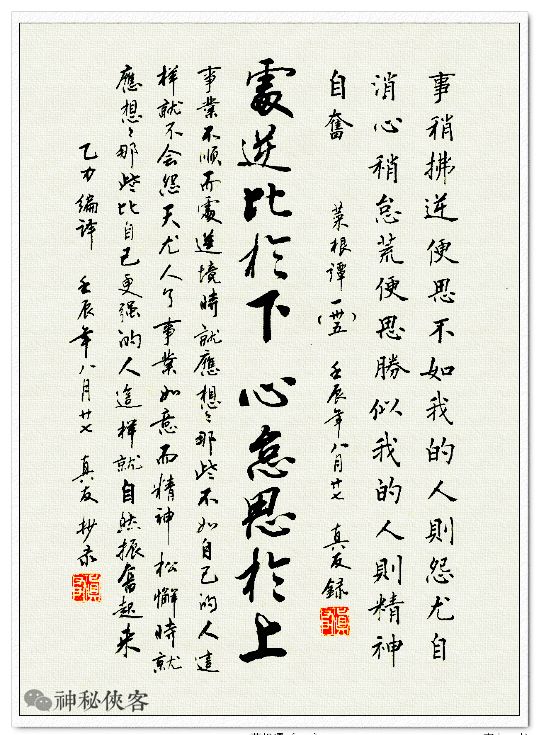 事稍拂逆便思不如我的人則怨尤自
消心稍怠荒便思勝似我的人則精神
自奮
菜根譚(一卌五) 壬辰年八月廿七 真友錄
處逆比於下 心怠思於上
事業不順而處逆境時就應想想那些不如自己的人這
樣就不会怨天尤人了事業如意而精神松懈時就
應想想那些比自己更强的人這樣就自然振奮起来
乙力编译 壬辰年八月廿七 真友抄录
神秘俠客